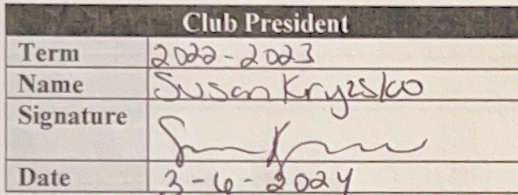 Club President
Term 2022-2023
Name Susan Kryzsko
Signature
Date 3-6-2024